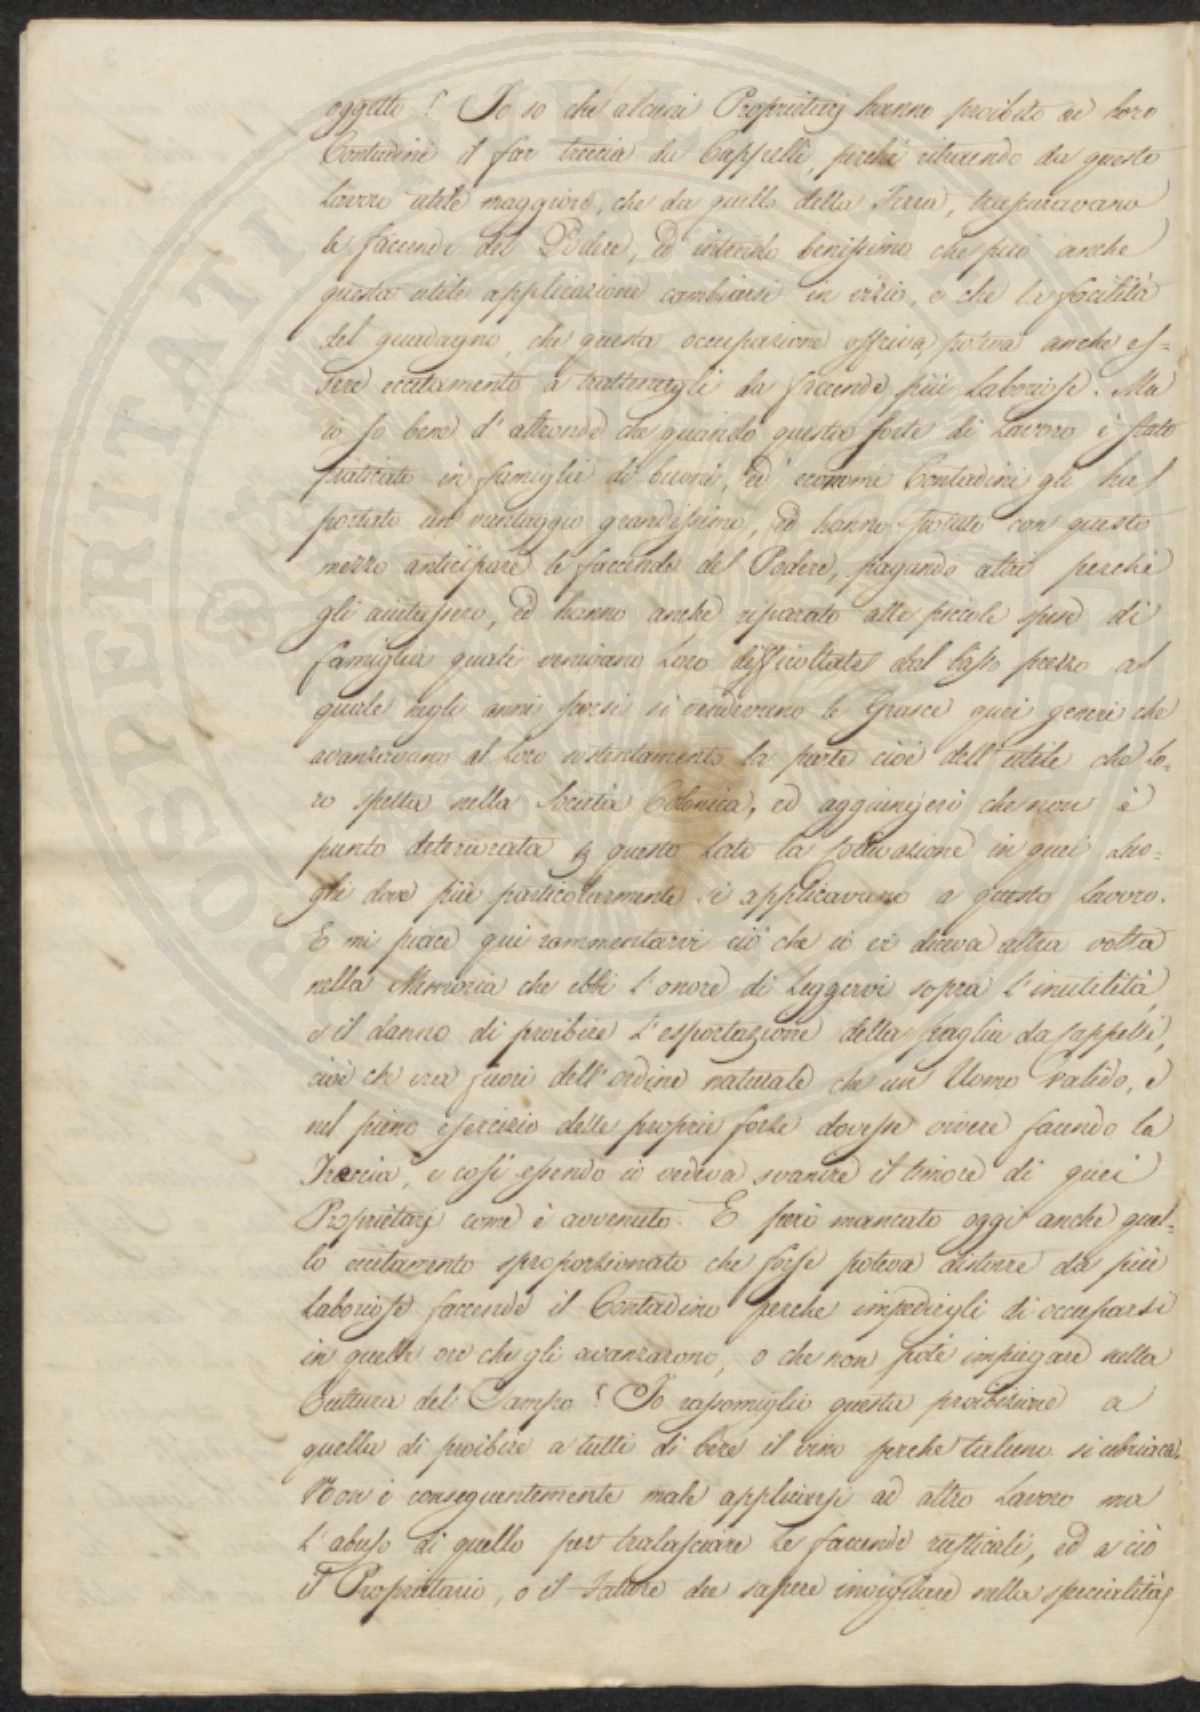 oggetto? Io so che alcuni Proprietarj hanno proibito ai loro
Contadini il far treccia da Cappelli, perché ritraendo da questo
lavoro utile maggiore, che da quello della Terra, trapassavano
le faccende del Podere, ed intendo benissimo che può anche
questa utile applicazione cambiarsi in vizio, e che la facilità
del guadagno, che questa occupazione offriva, poteva anche es=
sere eccitamento a trattenergli da faccende più laboriose. Ma
io so bene d'altronde che quando questa sorte di Lavoro è stato
praticato in famiglie di buoni, ed economi Contadini gli ha
portato un vantaggio grandissimo, ed hanno potuto con questo
mezzo anticipare le faccende del Podere, pagando altri perchè
gli aiutassero, ed hanno anche riparato alle piccole spese di
famiglia quali venivano loro difficoltate dal basso prezzo al
quale negli anni scorsi si vendevano le Grasce quei generi che
avanzavano al loro sostentamento la parte cioè dell'utile che lo=
ro spetta nella Società Colonica, ed aggiungerò che non è
punto deteriorata p questo lato la coltivazione in quei Luo=
ghi dove più particolarmente si applicavano a questo lavoro.
E mi piace qui rammentarvi ciò che io vi diceva altra volta
nella Memoria che ebbi l'onore di leggervi sopra l'inutilità,
e il danno di proibire l'esportazione della paglia da Cappelli,
cioè che era fuori dell'ordine naturale che un Uomo valido, e
nel pieno esercizio delle proprie forze dovesse vivere facendo la
Treccia, e così essendo io vedeva svanire il timore di quei
Proprietarj come è avvenuto. E però mancato oggi anche quel=
lo eccitamento sproporzionato che forse poteva distorre da più
laboriose faccende il Contadino perche impedirgli di occuparsi
in quelle ore che gli avanzarono, o che non potè impiegare nella
Cultura del Campo? Io rassomiglio questa proibizione a
quella di proibire a tutti di bere il vino perche taluno si ubriaca.
Non è conseguentemente male applicarsi ad altro Lavoro ma
l'abuso di quello per tralasciare le faccende rusticali, ed a ciò
il Proprietario, o il Fattore dee sapere invigilare nella specialità
PROSPERITATI PUBLICAE